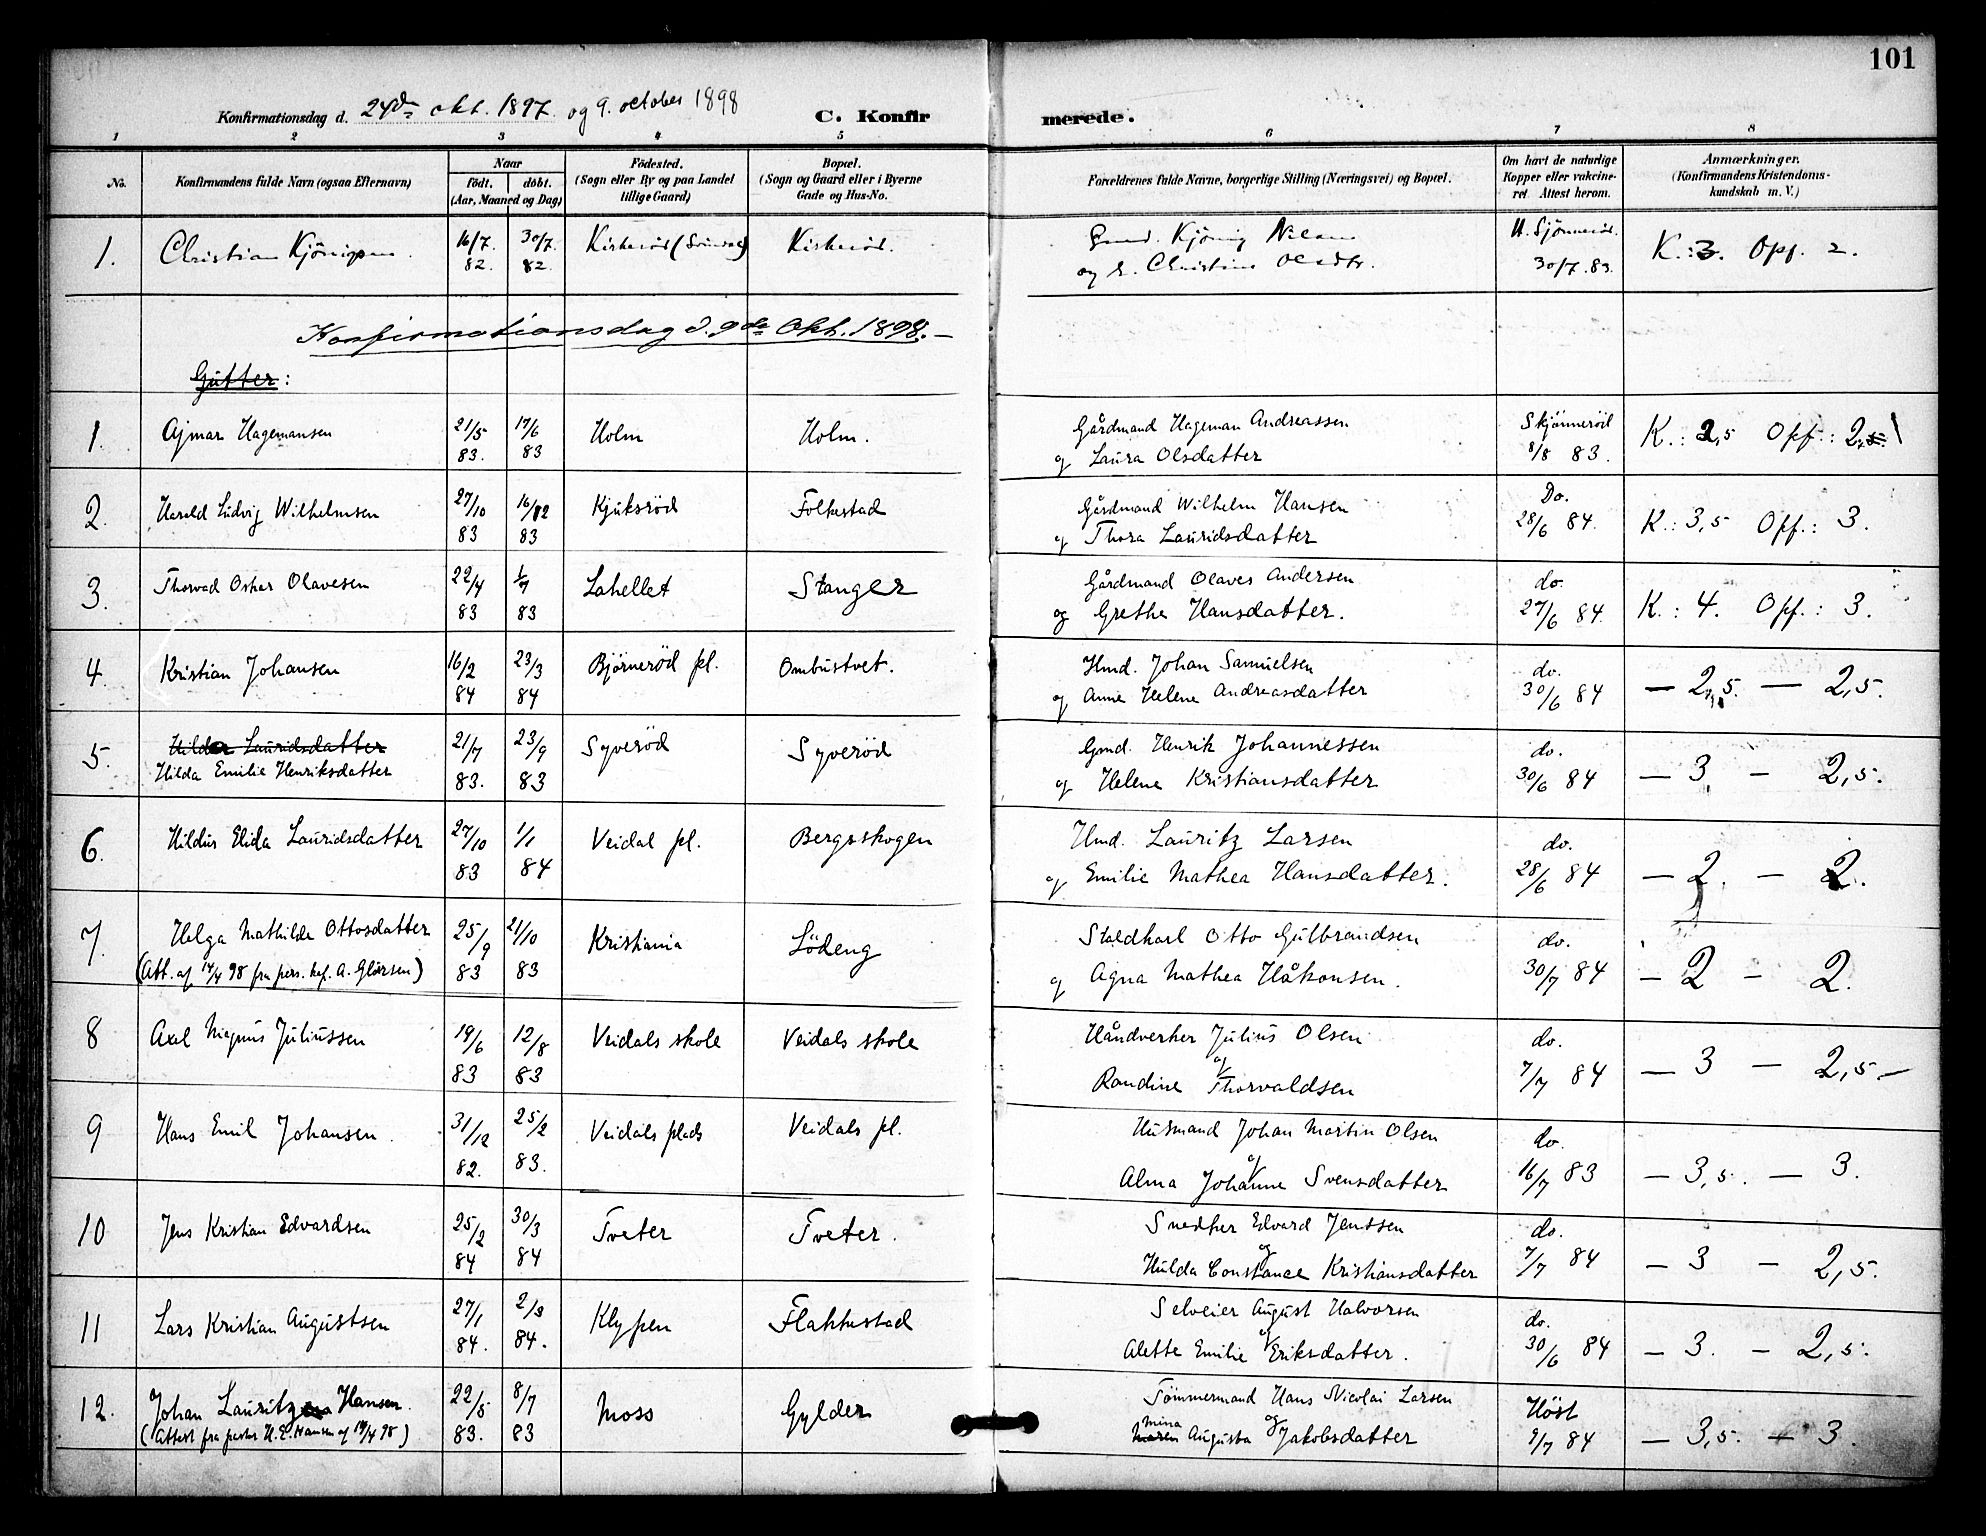 101
Konfirmationsdag d. 24de okt. 1897. og 9. october 1898
C. Konfirmerede.
1 2 3 4 5 6 7 8
No. Konfirmandens fulde Navn (ogsaa Efternavn) Naar födt. döbt. (Aar, Maaned og Dag) Födested. (Sogn eller By og paa Landet tillige Gaard) Bopæl. (Sogn og Gaard eller i Byerne Gade og Hus-No. Forældrenes fulde Navne, borgerlige Stilling (Næringsvei) og Bopæl. Om havt de naturlige Kopper eller vakcineret. Attest herom. Anmærkninger. (Konfirmandens Kristendomskundskab m. V.)
1. Christian 16/7. 82. 30/7. 82. Kirkeröd. Kjönig Nilsen K.: 3. Opf. 2.
og Christine 30/7. 83.
Konfirmationsdag d. 9de Okt. 1898.
Gutter:
1. Ajmar Hagemansen 21/5 83. 17/6 83 Holm Holm. Gårdmand Hageman Andreassen Skjönneröd K.: 2,5 Opf.: 2
og Laura Olsdatter 8/8 83.
2. Harald Ludvig Wilhelmsen 27/10 83 16/12 83 Kjuksröd Folkestad Gårdmand Wilhelm Hansen Do. K.: 3,5 Opf.: 3.
og Thora Lauridsdatter 28/6 84.
3. Thorvad Oskar Olavesen 22/4 83 1/7 83 Lahellet Stanger Gårdmand Olaves Andersen do. K.: 4. Opf.: 3.
og Grethe Hansdatter. 27/6 84.
4. Kristian Johansen 16/2 84 23/3 84 Bjørneröd pl. Ombustvet. Hmd. Johan Samuelsen do. — 2,5. — 2,5.
og Anne Helene Andreasdatter 30/6 84
5. Lauridsdatter 21/7 83. 23/9 83 Syveröd Syveröd Gmd. Henrik Johannessen do. — 3 — 2,5.
Hilda Emilie Henriksdatter og Helene Kristiansdatter 30/6 84
6. Hildur Elida Lauridsdatter 27/10 83 1/1 84 Veidal pl. Bergskogen Hmd. Lauritz Larsen do. — 2. — 2.
og Emilie Mathea Hansdatter. 28/6 84
7. Helga Mathilde Ottosdatter 25/9 83 21/10 83 Kristiania Lödeng Staldkarl Otto Gulbrandsen do. — 2 — 2.
(Att. af 14/4 98 fra pers. kap. A. Glärsen) og Agna Mathea Håkonsen. 30/7 84
8 Axel Magnus Juliussen 19/6 83 12/8 83 Veidals skole Veidals skole Håndverker Julius Olsen do. — 3 — 2,5.
og Randine Thorvaldsen 7/7 84
9 Hans Emil Johansen. 31/12 82. 25/2 83. Veidals plads Veidals pl. Husmand Johan Martin Olsen do. — 3,5. — 3.
og Alma Johanne Svensdatter 16/7 83
10 Jens Kristian Edvardsen 25/2 84 30/3 84 Tveter Tveter. Snedker Edvard Jenssen do. — 3 — 2,5.
og Hulda Constance Kristiansdatter 7/7 84
11 Lars Kristian Augustsen 27/1 84. 2/3 84. Klypen Flakkestad Selveier August Halvorsen do. — 3. — 2,5.
og Alette Emilie Eriksdatter. 30/6 84
12. Johan Lauritz Hansen. 22/5 83. 8/7 83 Moss Gylder Tömmermand Hans Nicolai Larsen Höst — 3,5. — 3.
(Attest fra pastor H. E. Hansen af 19/4 98) Mina Maren Augusta og Jakobsdatter 9/7 84